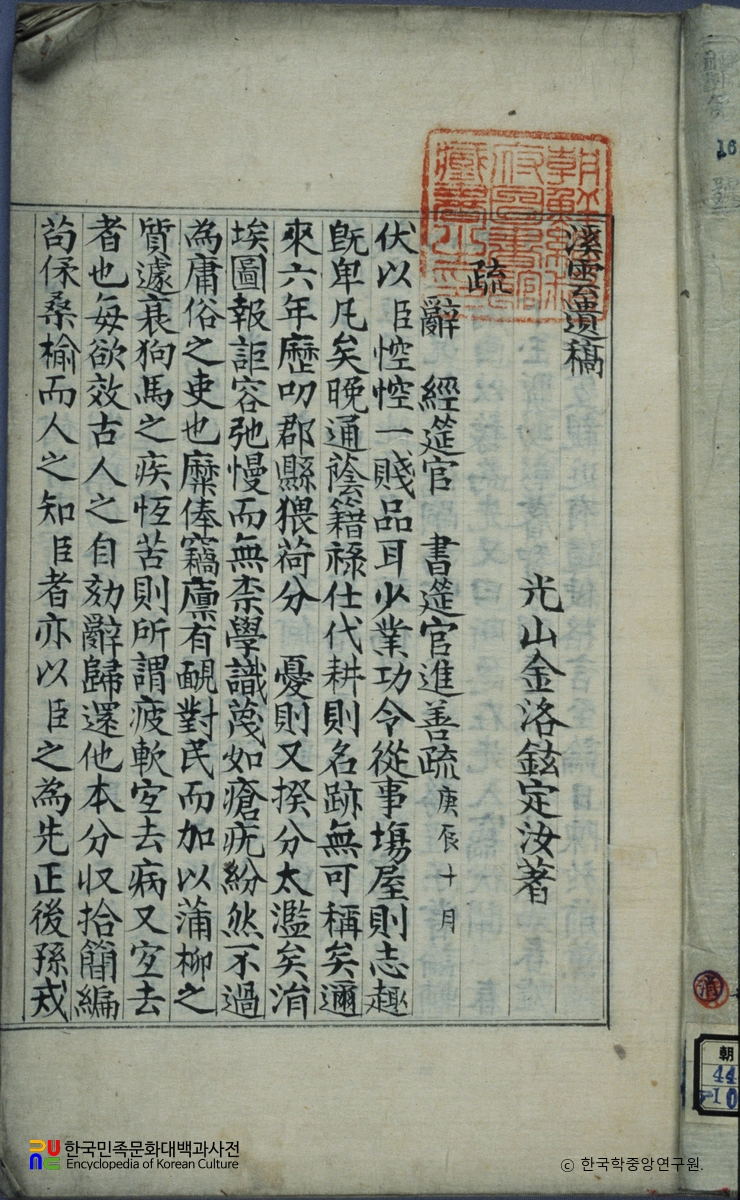 溪雲遺稿
光山金洛鉉定汝著
疏
辭 經筵官 書筵官進善疏 庚辰十月
伏以臣悾悾一賤品耳少業功令從事塲屋則志趣
旣卑凡矣晚通蔭籍祿仕代耕則名跡無可稱矣邇
來六年歷叨郡縣猥荷分 憂則又揆分太濫矣涓
埃圖報詎容弛慢而無柰學識蔑如瘡疣紛然不過
為庸俗之吏也糜俸竊廪有靦對民而加以蒲柳之
質遽衰狗馬之疾恆苦則所謂疲軟宜去病又宜去
者也每欲效古人之自劾辭歸還他本分収拾簡編
苟俫桑榆而人之知臣者亦以臣之為先正後孫戎
朝鮮總督府圖書館藏書之印
16
消
朝
44
-10
한국민족문화대백과사전
Encyclopedia of Korean Culture
ⓒ 한국학중앙연구원.